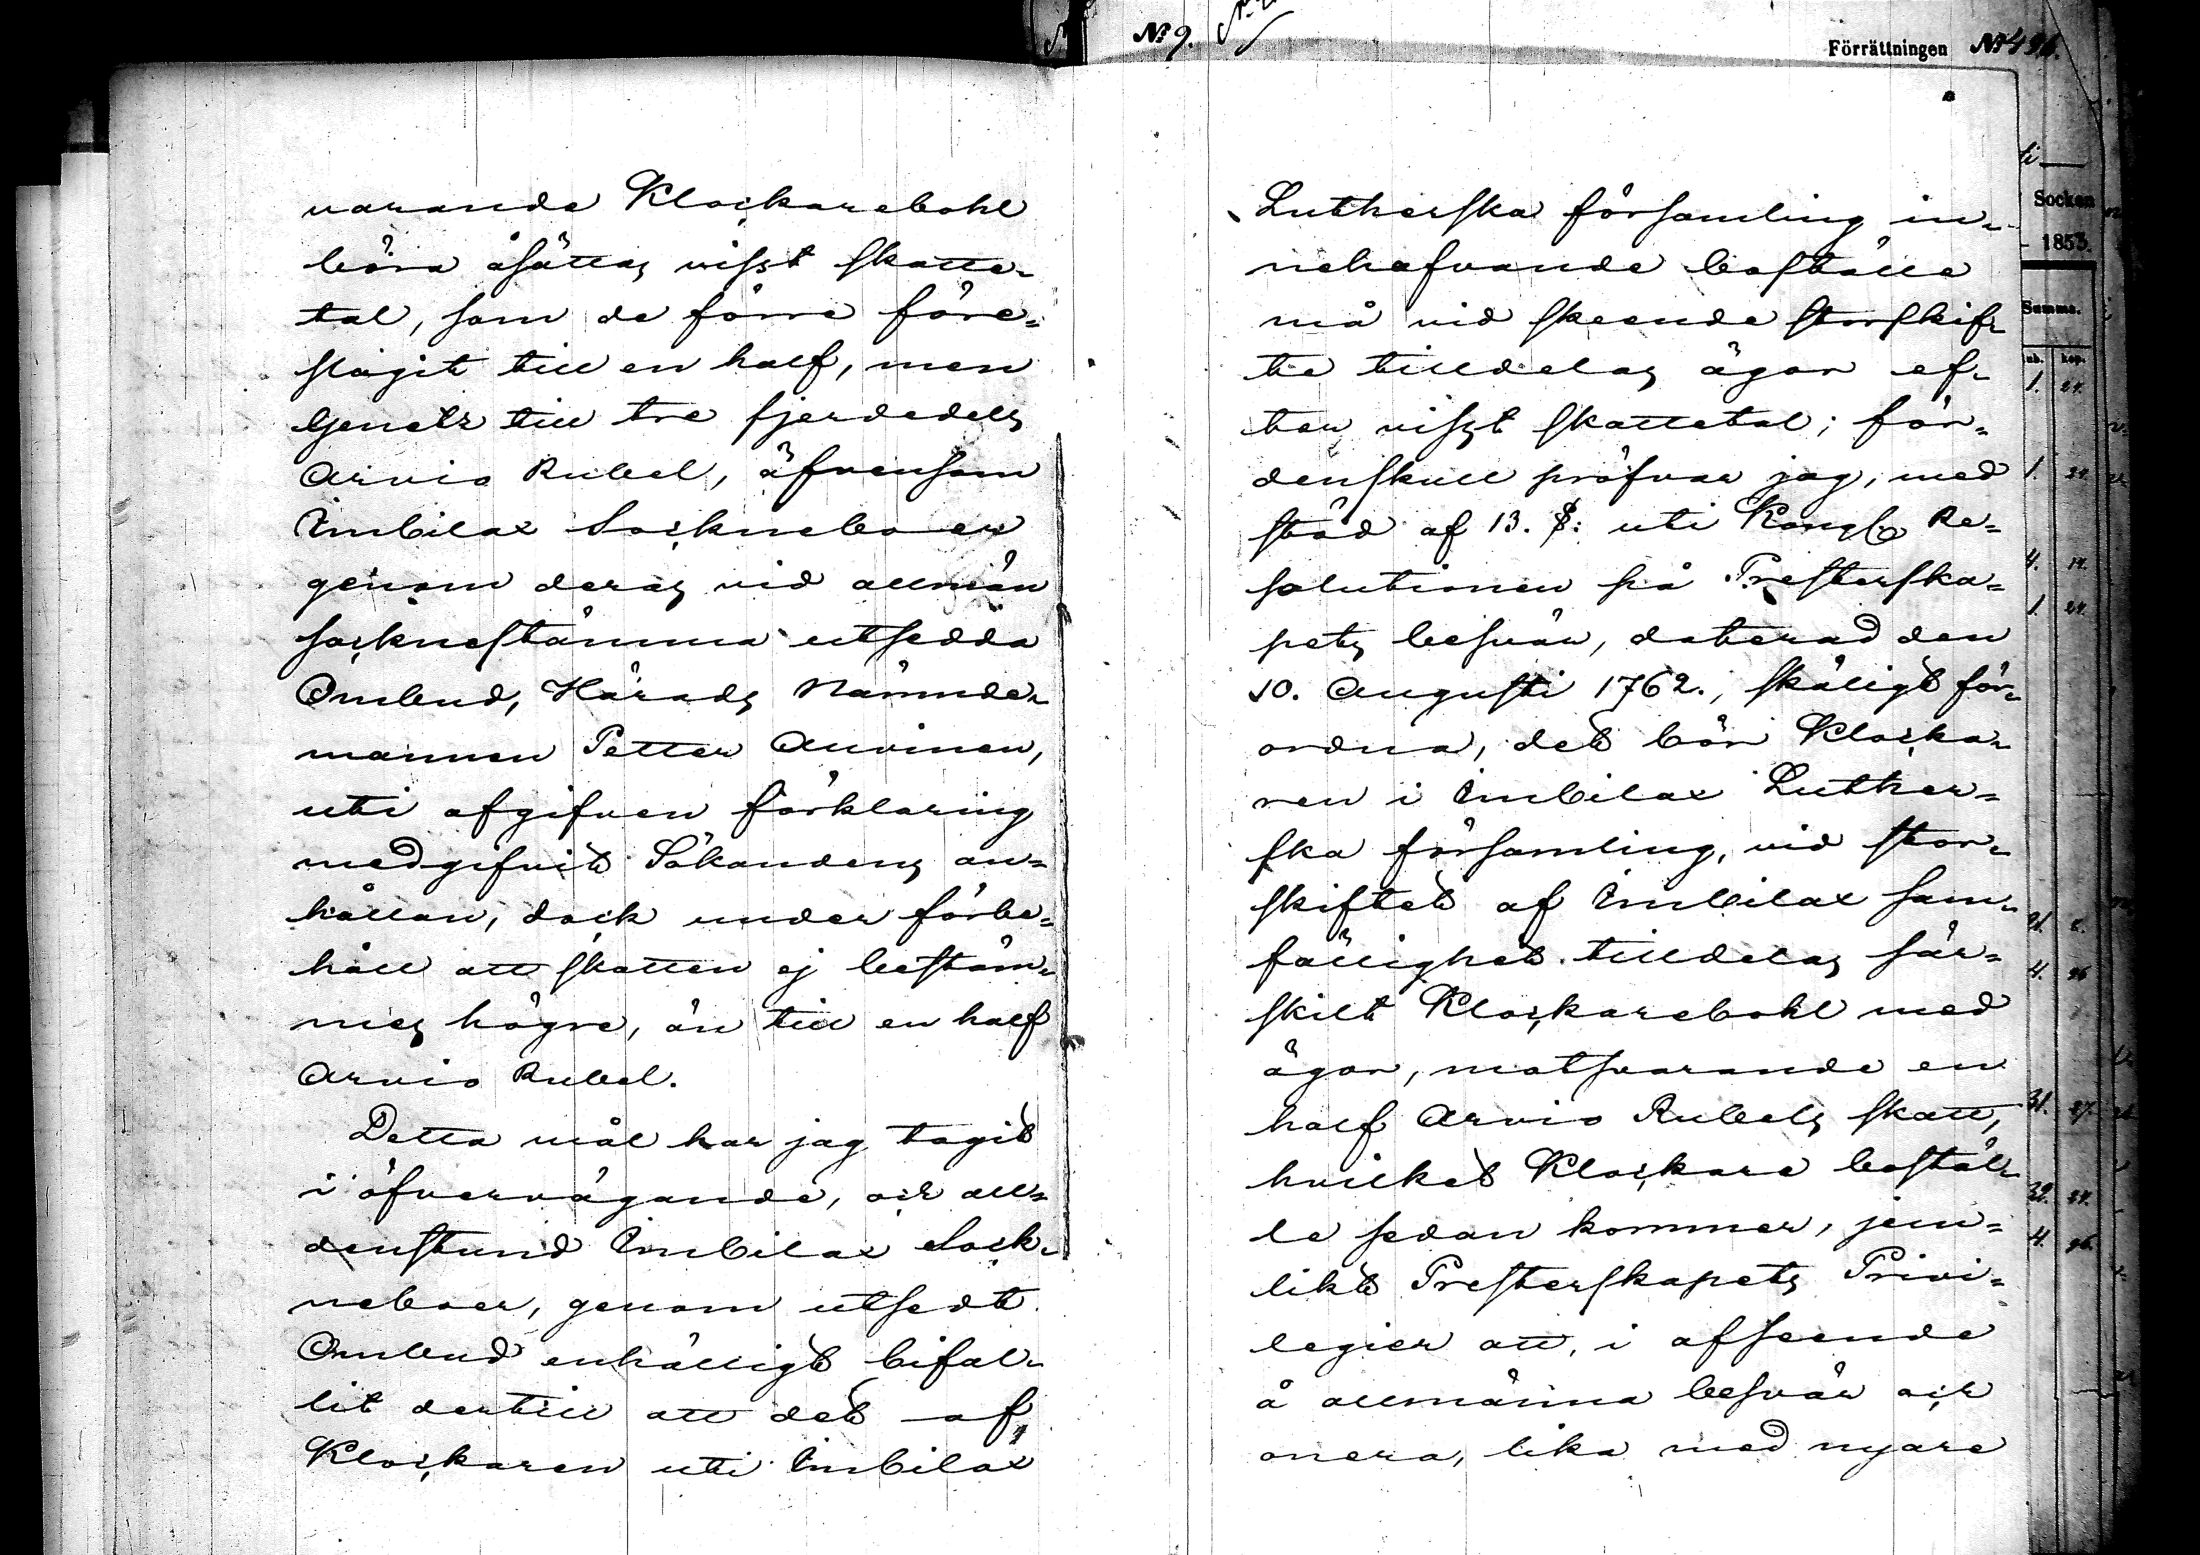 varande Klockarebohl
böra åsättas visst skatte-
tal, som de förre före-
slagit till en half, men
till tre fjerdedels
Arvio Rubel, äfvensom
Imbilax Sockneboer
genom deras vid allmän
socknestämma utsedda
Ombud, Härads Nämnde-
mannen Petter Auvinen,
uti afgifven förklaring
medgifvit Sökandens an-
hållan, dock under förbe-
håll att skatten ej bestäm-
mes högre, än till en half
Arvio Rubel.
Detta mål har jag tagit
i öfvervägande, och all-
denstund Imbilax Sock-
neboer, genom utsedt
Ombud enhälligt bifal-
lit dertill att det af
Klockaren uti Imbilax
No 9.
Förrättningen No
Lutherska församling in-
nehafvande boställe
må vid skeende storskif-
te tilldelas ägor ef-
ter visst skattetal; för-
denskull pröfvar jag, med
stöd af 13. §: uti Kongl. Re-
solutionen på Presterska-
pets besvär, daterad den
10. Augusti 1762., skäligt för-
ordna, det bör Klocka-
ren i Imbilax Luther-
ska församling, vid stor-
skiftet af Imbilax sam-
fällighet tilldelas sär-
skilt Klockarebohl med
ägor, motsvarande en
half Arvio Rubels skatt,
hvilket Klockare bostäl-
le sedan kommer, jem-
likt Presterskapets Privi-
legier att, i afseende
å allmänna besvär och
onera, lika med nyare
Socken
1853.
Summa.
kop.
1. 24.
1. 24.
4. 14.
1. 24.
4. 96
31. 27.
32. 24.
4. 96.